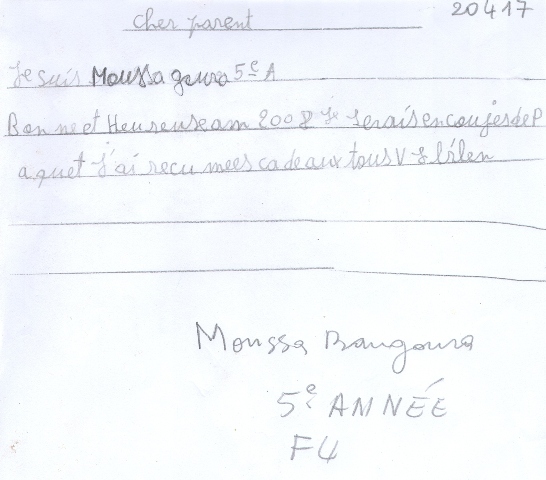 20417
cher parent
Je suis Moussa goura 5e A
Bon ne et Heureuse am 2008 Je serais en coujés de P
aquet J'ai reçu mees cadeaux tous V
Moussa Bangoura
5e ANNÉE
F4